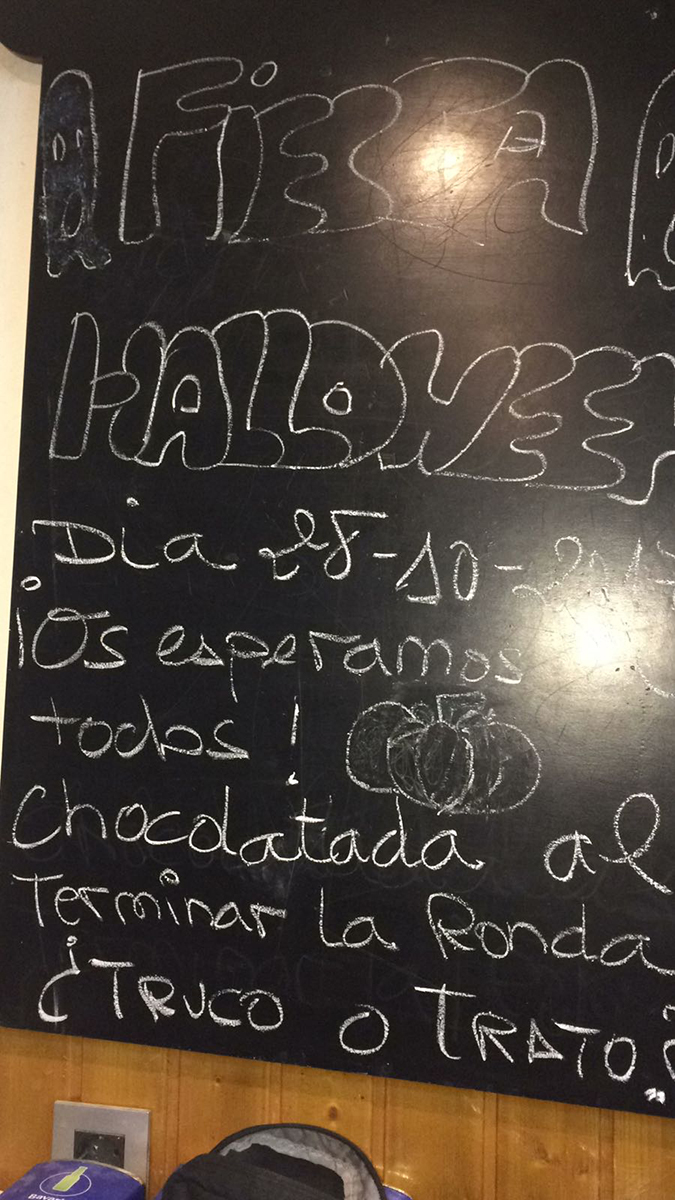 FiESTA
HALLOWEEN
Dia 25-10-2017
¡Os esperamos a
todos!
Chocolatada al
Terminar la Ronda
¿TRUCO o TRATO?